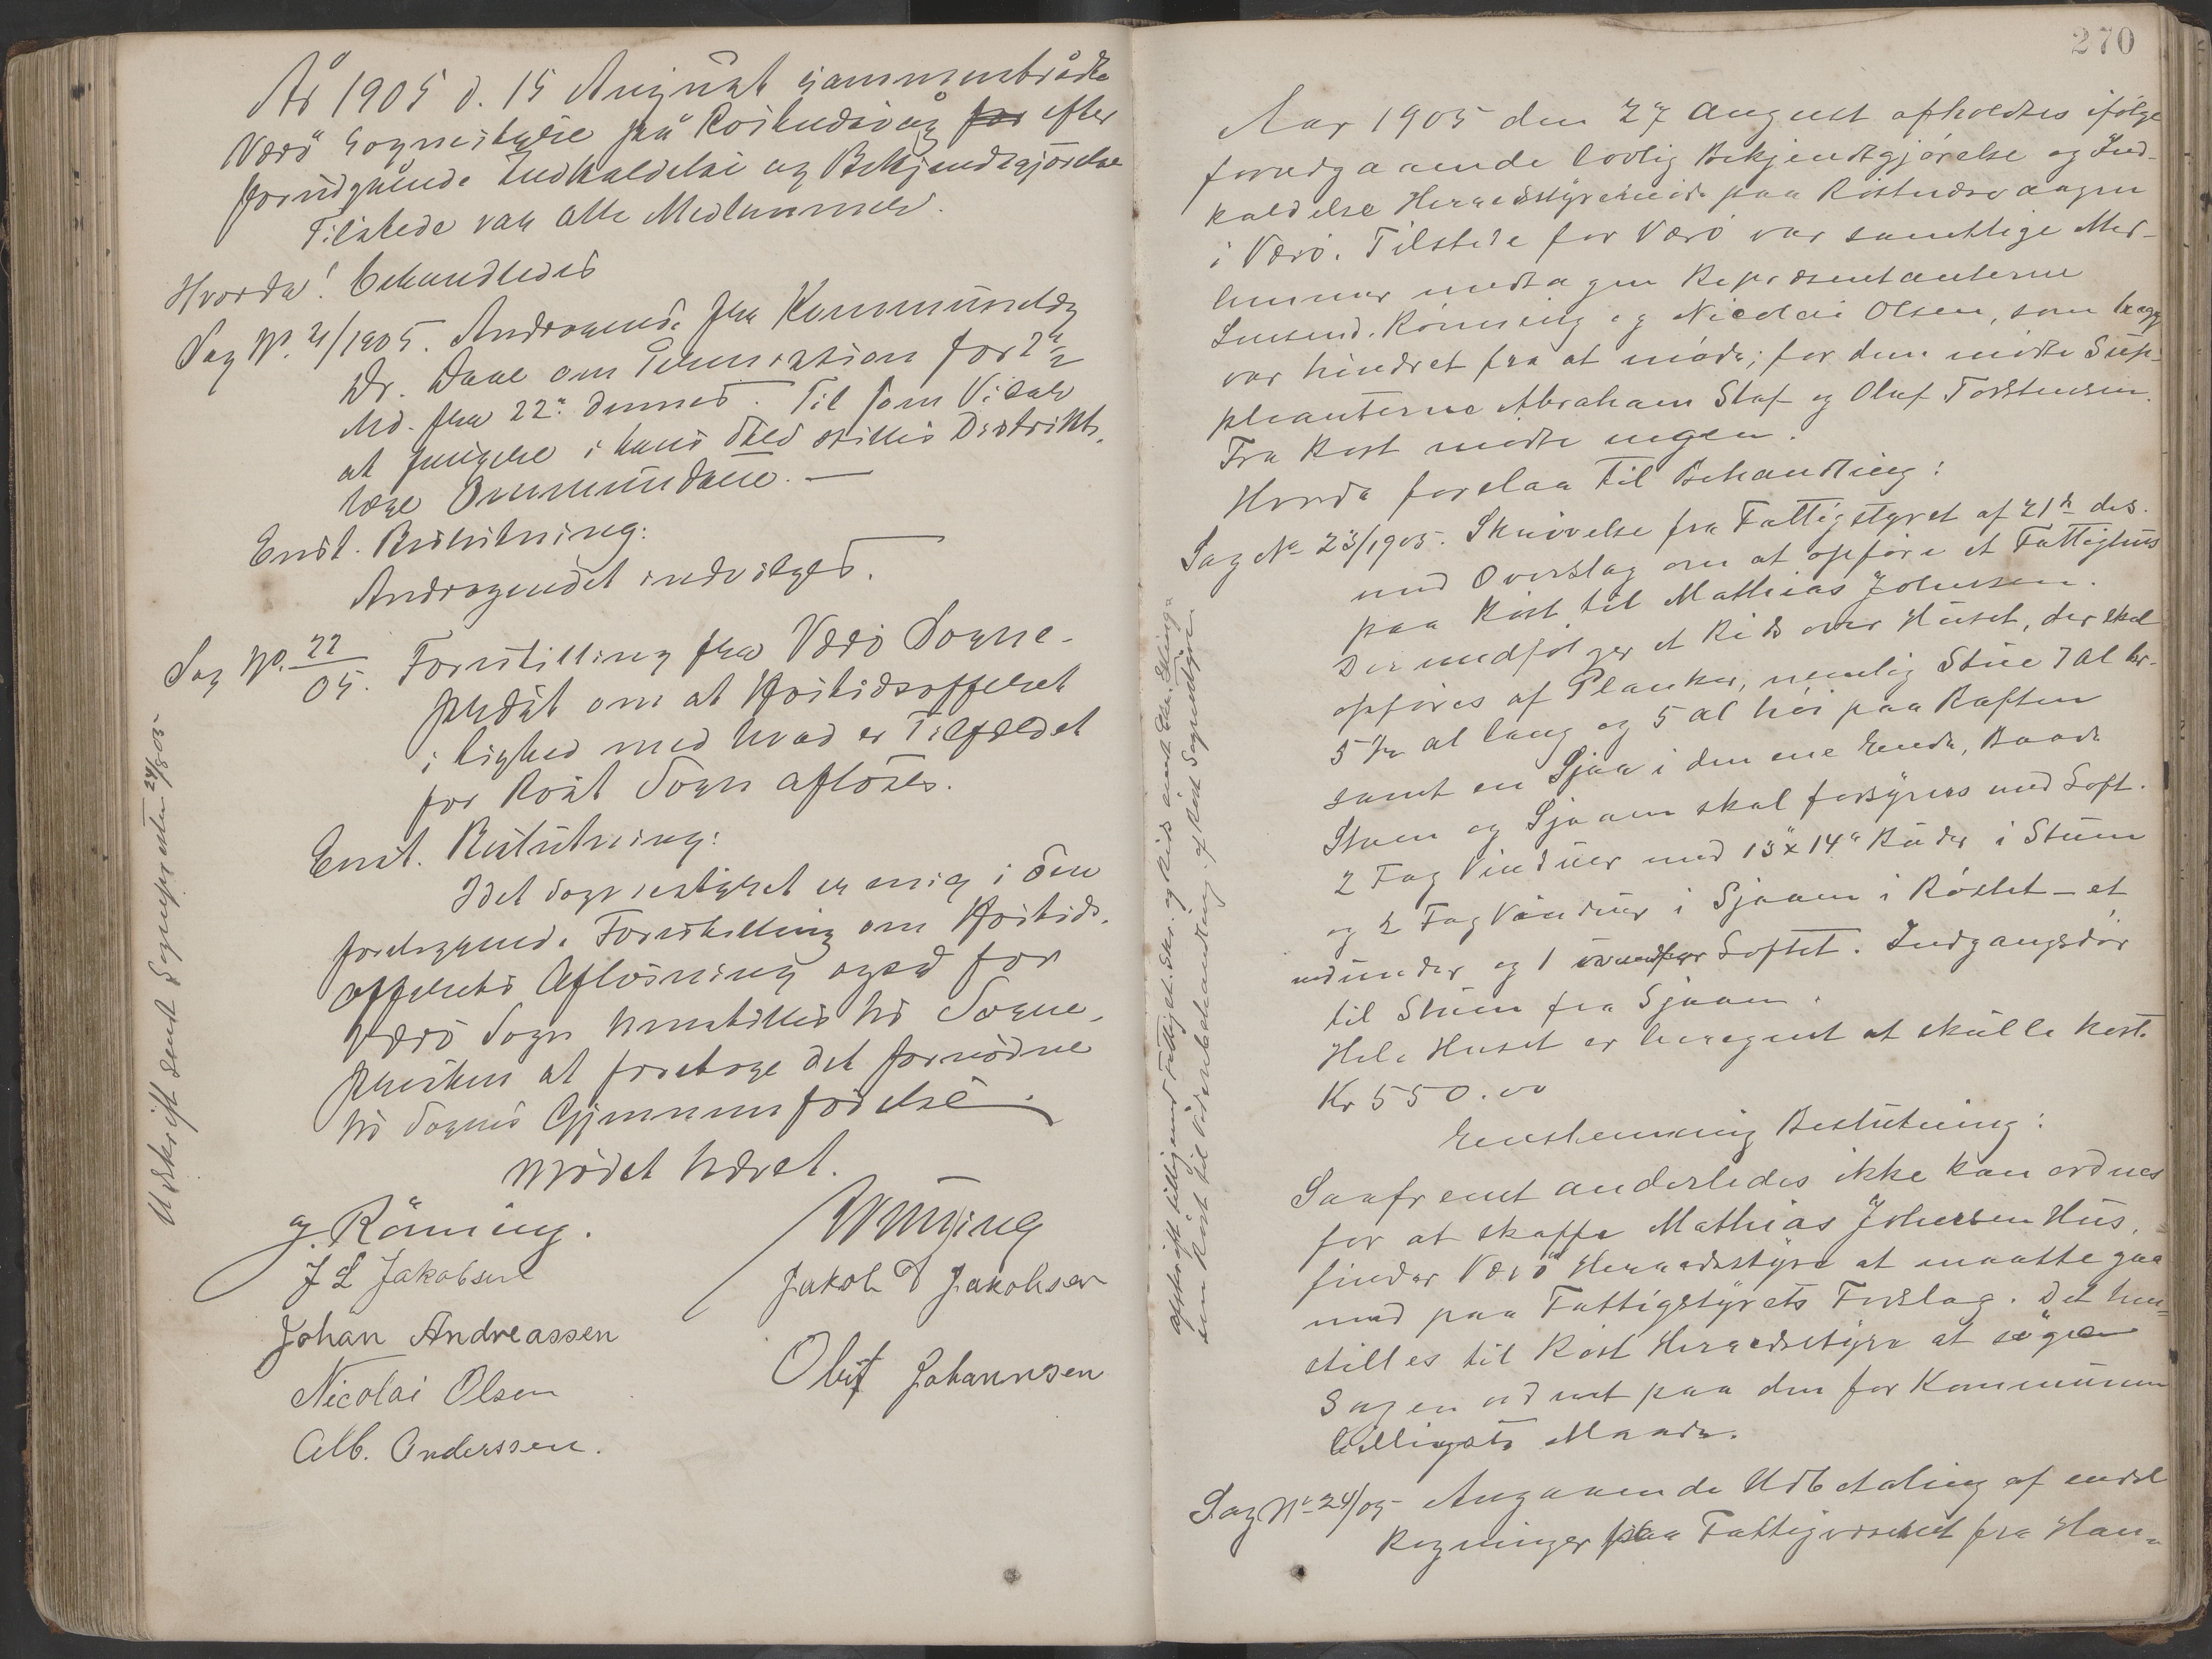 År 1905 d. 15 August sammentrådte
Værö Sognestyre på Röstnesvåg for efter
forudgående Indkaldelse og Bekjendtgjörelse
Tilstede var alle Medlemmer.
Hvorda! behandledes
Sag No. 21/1905. Andragende fra Kommunelæg
Dr. Daae om Permission for 2
Md. fra 22. dennes. Til som Vikar
at fungere i hans Sted stilles Distrikts-
læge
Enst. Beslutning:
Andragendet indvilges.
Sag No. 22/05. Forestilling fra Værö Sogne-
præst om at Höitidsofferet
i lighed med hvad er Tilfældet
for Röst Sogn aflöses.
Enst. Beslutning:
Idet Sognestyret er enig i den
foreliggende Forestilling om Höitids-
offerets Aflösning også for
Værö Sogn henstilles til Sogne-
præsten at foretage det fornödne
til Sagens Gjennemförelse.
Mödet hævet.
J. Rönning.
J L Jakobsen
Jakob D Jakobsen
Johan Andreassen
Oluf Johannesen
Nicolai Olsen
Alb. Anderssen.
Udskrift sendt Sognepræsten 24/8 05
270
Aar 1905 den 27 August afholdtes ifölge
forudgaaende lovlig Bekjendtgjörelse og Ind-
kaldelse Herredsstyremöde paa Röstnesvaagen
i Værö. Tilstede for Værö var samtlige Med-
lemmer undtagen Repræsentanterne
Lensmd. Rönning og Nicolai Olsen, som begge
var hindret fra at möde; for dem mödte Sup-
pleanterne Abraham Staf og Oluf Torstensen.
Fra Röst mödte ingen.
Hvorda forelaa til Behandling:
Sag No 23/1905. Skrivelse fra Fattigstyret af 21de ds.
med Overslag om at opföre et Fattighus
paa Röst til Mathias Johnsen.
Der medfölger et Rids over Huset, der skal
opföres af Planker, nemlig Stue 7 Al br.
5 1/2 al lang og 5 al höi paa Raften
samt en Sjaa i den ene Ende, Baade
Stuen og Sjaaen skal forsynes med Loft.
2 Fag Vinduer med 13" x 14" Ruder i Stuen
og 2 Fag Vinduer i Sjaaen i Röstet - et
nedunder og 1 ovenfor Loftet. Indgangsdör
til Stuen fra Sjaaen.
Hele Huset er beregnet at skulle koste
Kr 550.00
Enstemmig Beslutning:
Saafremt anderledes ikke kan ordnes
for at skaffe Mathias Johnsen Hus,
finder Værö Herredsstyre at maatte gaa
med paa Fattigstyrets Forslag. Det hen-
stilles til Röst Herredsstyre at söge
Sagen ordnet paa den for Kommunen
billigste Maade.
Sag No 24/05 Angaaende Udbetaling af endel
Regninger paa Fattigvæsenet fra Han-
Afskrift tilligemed Fattigst. Skr. og Rids sendt
Röst til Viderebehandling af Röst Sognestyre